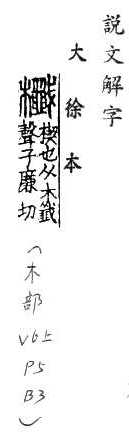 説文解字
大徐本
櫼
楔也从木韱
聲子廉切
(木部
V6上
P5
B3)